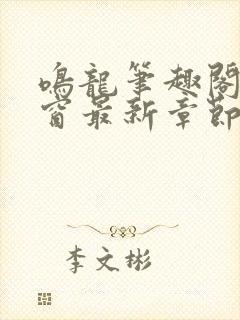 鳴龍筆趣閣
窗最新章節
李文彬